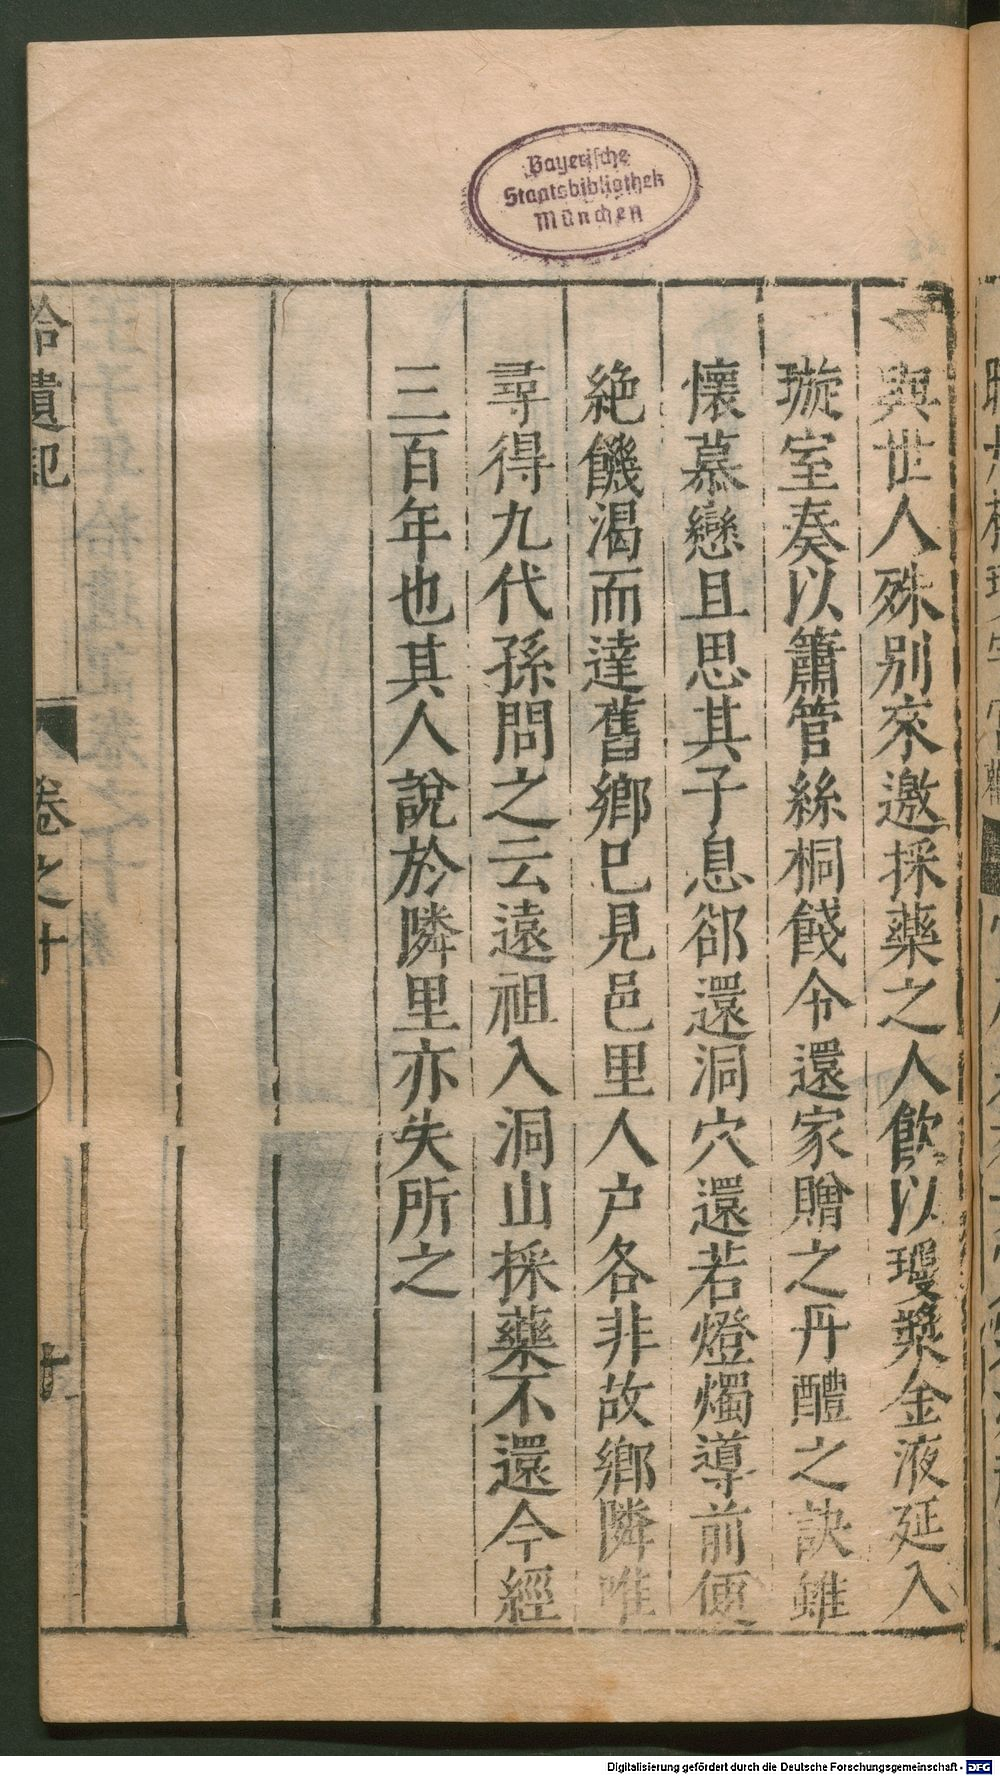 與世人殊別來邀採藥之人飲以瓊漿金液延入
璇室奏以簫管絲桐餞令還家贈之丹醴之訣雖
懷慕戀且思其子息郤還洞穴還若燈燭導前便
絶饑渴而達舊鄉已見邑里人户各非故鄉隣唯
尋得九代孫問之云遠祖入洞山採藥不還今經
三百年也其人說於隣里亦失所之
拾遺記
卷之十
十
Bayerische
Staatsbibliothek
München
Digitalisierung gefördert durch die Deutsche Forschungsgemeinschaft - DFG